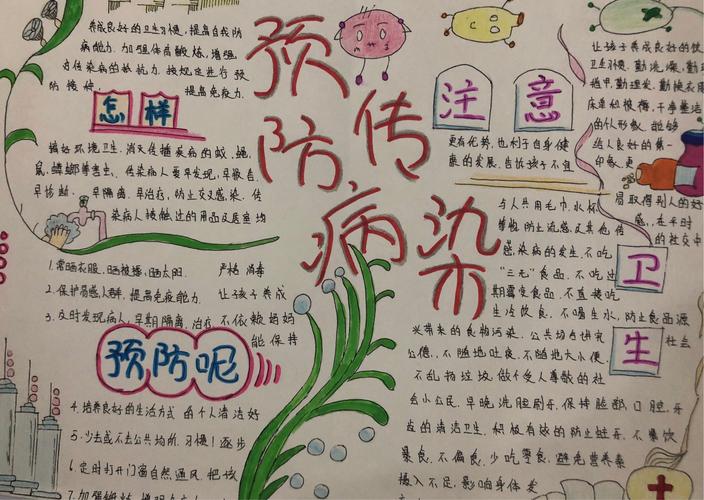 预防传染病
养成良好的卫生习惯,提高自我防
病能力.加强体育锻炼,增强
对传染病的抵抗力.按规定进行预
防接种, 提高免疫力.
怎样
搞好环境卫生,消灭传播疾病的蚊、蝇
鼠、蟑螂等害虫、传染病人要早发现,早报告.
早诊断、早隔离、早治疗,防止交叉感染.传
染病人接触过的用品及居室均
严格消毒
1.常晒衣服、晒被褥、晒太阳.
2.保护易感人群,提高免疫能力.
3.及时发现病人,早期隔离,治疗
让孩子养成
不依赖妈妈
能保持
预防呢
4.培养良好的生活方式
的个人清洁好
5.少去或不去公共场所.
习惯!逐步
6.定时打开门窗自然通风
把孩
7.加强锻炼,增强
注意
让孩子养成良好的饮
卫生习惯.勤洗澡,勤
指甲,勤理发.勤换衣服
床单和被褥,干净整洁
的人形象,能够
给人良好的第一
印象,更
易取得别人的好
感,在平时
的社交中
更有优势,也利于自身健
康的发展.告诉孩子不宜
与人共用毛巾、水杯
等物,防止流感及其他传
感染病的发生.不吃
"三无"食品,不吃过
期霉变食品,不直接吃
生冷饮食,不喝生水,防止食品源
卫生
来带来的食物污染.公共场合讲究
社会
公德,不随地吐痰,不随地大小便
不乱扔垃圾.做个受人尊敬的社
会小公民.早晚洗脸刷牙.保持脸部、口腔、牙
齿的清洁卫生.积极有效的防止蛀牙.不餐饮
暴食.不偏食,少吃零食,避免营养素
摄入不足,影响身体发